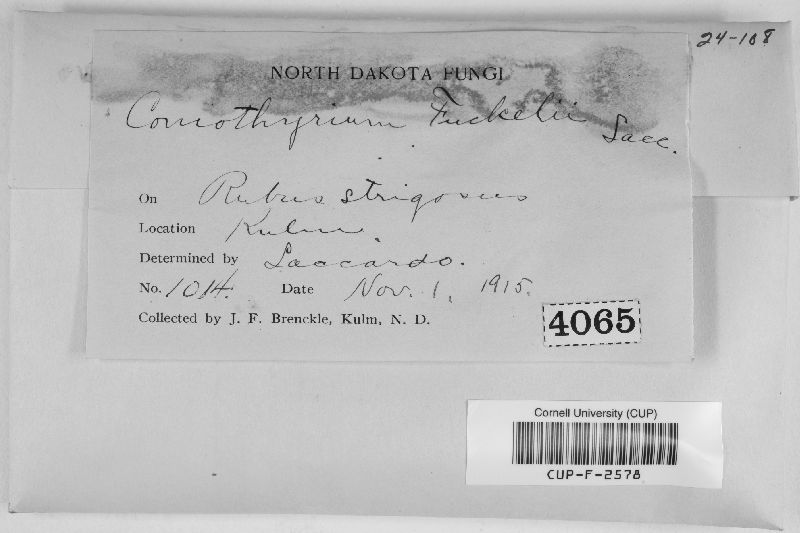 24-108
NORTH DAKOTA FUNGI
Coniothyrium Fuckelii Sacc.
On Rubus strigosus
Location Kulm.
Determined by Saccardo.
No. 1014. Date Nov. 1, 1915.
Collected by J. F. Brenckle, Kulm, N. D.
4065
Cornell University (CUP)
CUP-F-2578